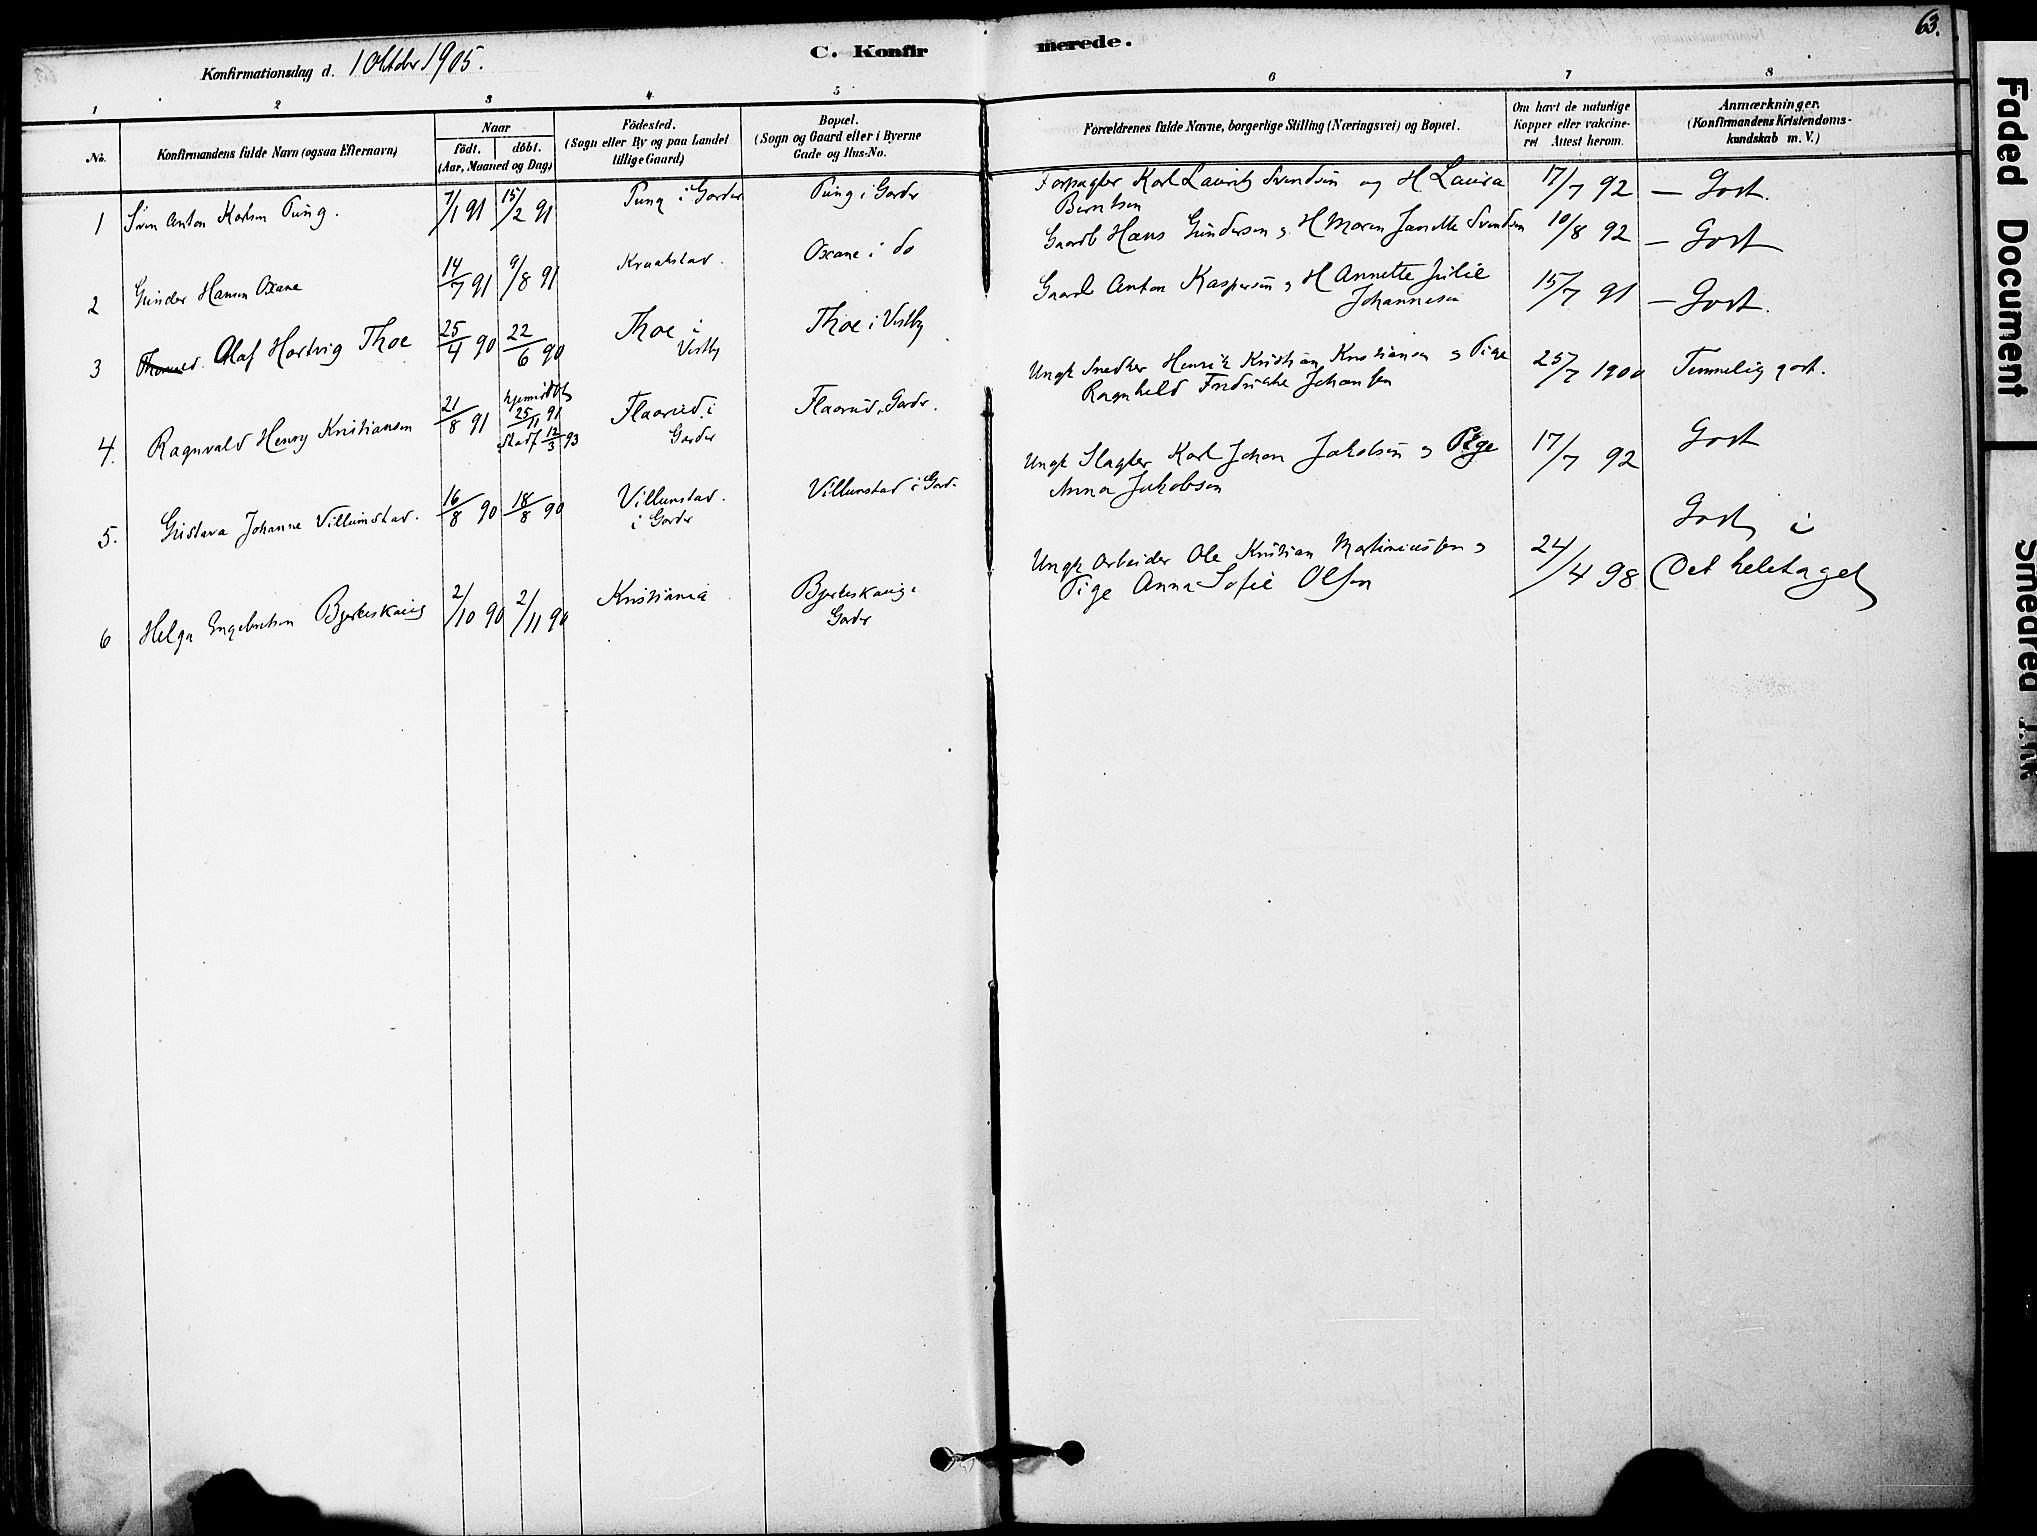 63.
C. Konfirmerede.
Konfirmationsdag d. 1 Oktober 1905.
1 2 3 4 5 6 7 8
No.
Konfirmandens fulde Navn (ogsaa Efternavn)
Naar
födt. döbt.
(Aar, Maaned og Dag)
Födested.
(Sogn eller By og paa Landet
tillige Gaard)
Bopæl.
(Sogn og Gaard eller i Byerne
Gade og Hus-No.
Forældrenes fulde Navne, borgerlige Stilling (Næringsvei) og Bopæl.
Om havt de naturlige
Kopper eller vakcine-
ret Attest herom.
Anmærkninger.
(Konfirmandens Kristendoms-
kundskab m. V.)
1 Sven Anton Karlsen Pung. 7/1 91 15/2 91 Pung i Garder Pung i Garder Forpagter Karl Lauritz Svendsen og H Laura 17/7 92 — Godt.
Berntsen
2 Gunder Hansen Oxane 14/7 91 9/8 91 Kraakstad. Oxane i do Gaardb Hans Gundersen og H Maren Janette Svendsen 10/8 92 — Godt
3 Olaf Hartvig Thoe 25/4 90 22/6 90 Thoe i Thoe i Vestby Gaardb Anton Kaspersen og H Annette Julie 15/7 91 — Godt.
Vestby
Johannesen
4. Ragnvald Henry Kristiansen 21/8 91 hjemmedøbt 25/11 91 Stadf 12/3 93 Flaarud i Flaarud i Garder. Ungk Snedker Henrik Kristian Kristiansen og Pige 25/7 1900 Temmelig godt.
Garder
Ragnhild Fredrikke Johansen
5. Gustava Johanne Villumstad. 16/8 90 18/8 90 Villumstad. Villumstad i Gard. Ungk Slagter Karl Johan Jakobsen og Pige 17/7 92 Godt
i Garder
Anna Jakobsen
6 Helga Engebretsen Bjerkeskaug 2/10 90 2/11 90 Kristiania Bjerkeskaug i Ungk Arbeider Ole Kristian Martiniussen og 24/4 98 Godt i
Garder
Pige Anna Sofie Olsen
Det heletaget
Faded Document
Smeared Ink